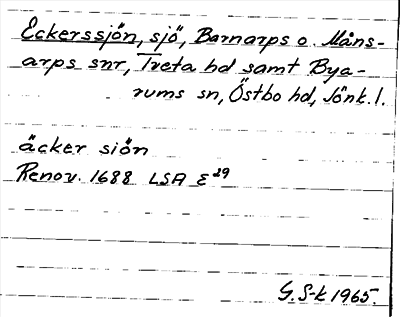 Eckerssjön, sjö, Barnarps o. Måns-
arps snr, Tveta hd samt Bya-
rums sn, Östbo hd, Jönk. l.
äcker siön
Renov. 1688 LSA E 29
G. S-k 1965.